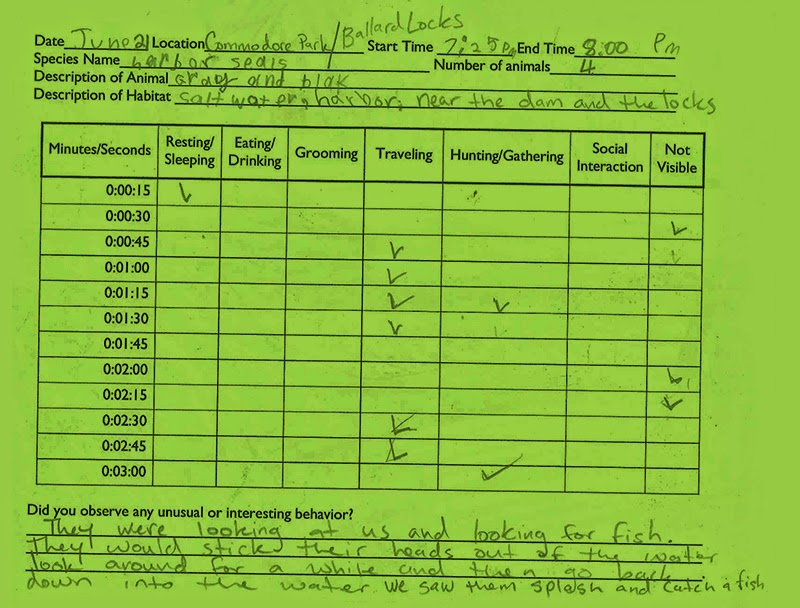 Date June 21 Location Commodore Park/Ballard Locks Start Time 7:25 Pm End Time 8:00 Pm
Species Name harbor seals Number of animals 4
Description of Animal Gray and blak
Description of Habitat Salt water, harbor, near the dam and the locks
Minutes/Seconds Resting/Sleeping Eating/Drinking Grooming Traveling Hunting/Gathering Social Interaction Not Visible
0:00:15 ✓
0:00:30 ✓
0:00:45 ✓
0:01:00 ✓
0:01:15 ✓ ✓
0:01:30 ✓
0:01:45
0:02:00 ✓
0:02:15 ✓
0:02:30 ✓
0:02:45 ✓
0:03:00 ✓
Did you observe any unusual or interesting behavior?
They were looking at us and looking for fish.
They would stick their heads out of the water
look around for a while and then go back
down into the water we saw them splash and catch a fish